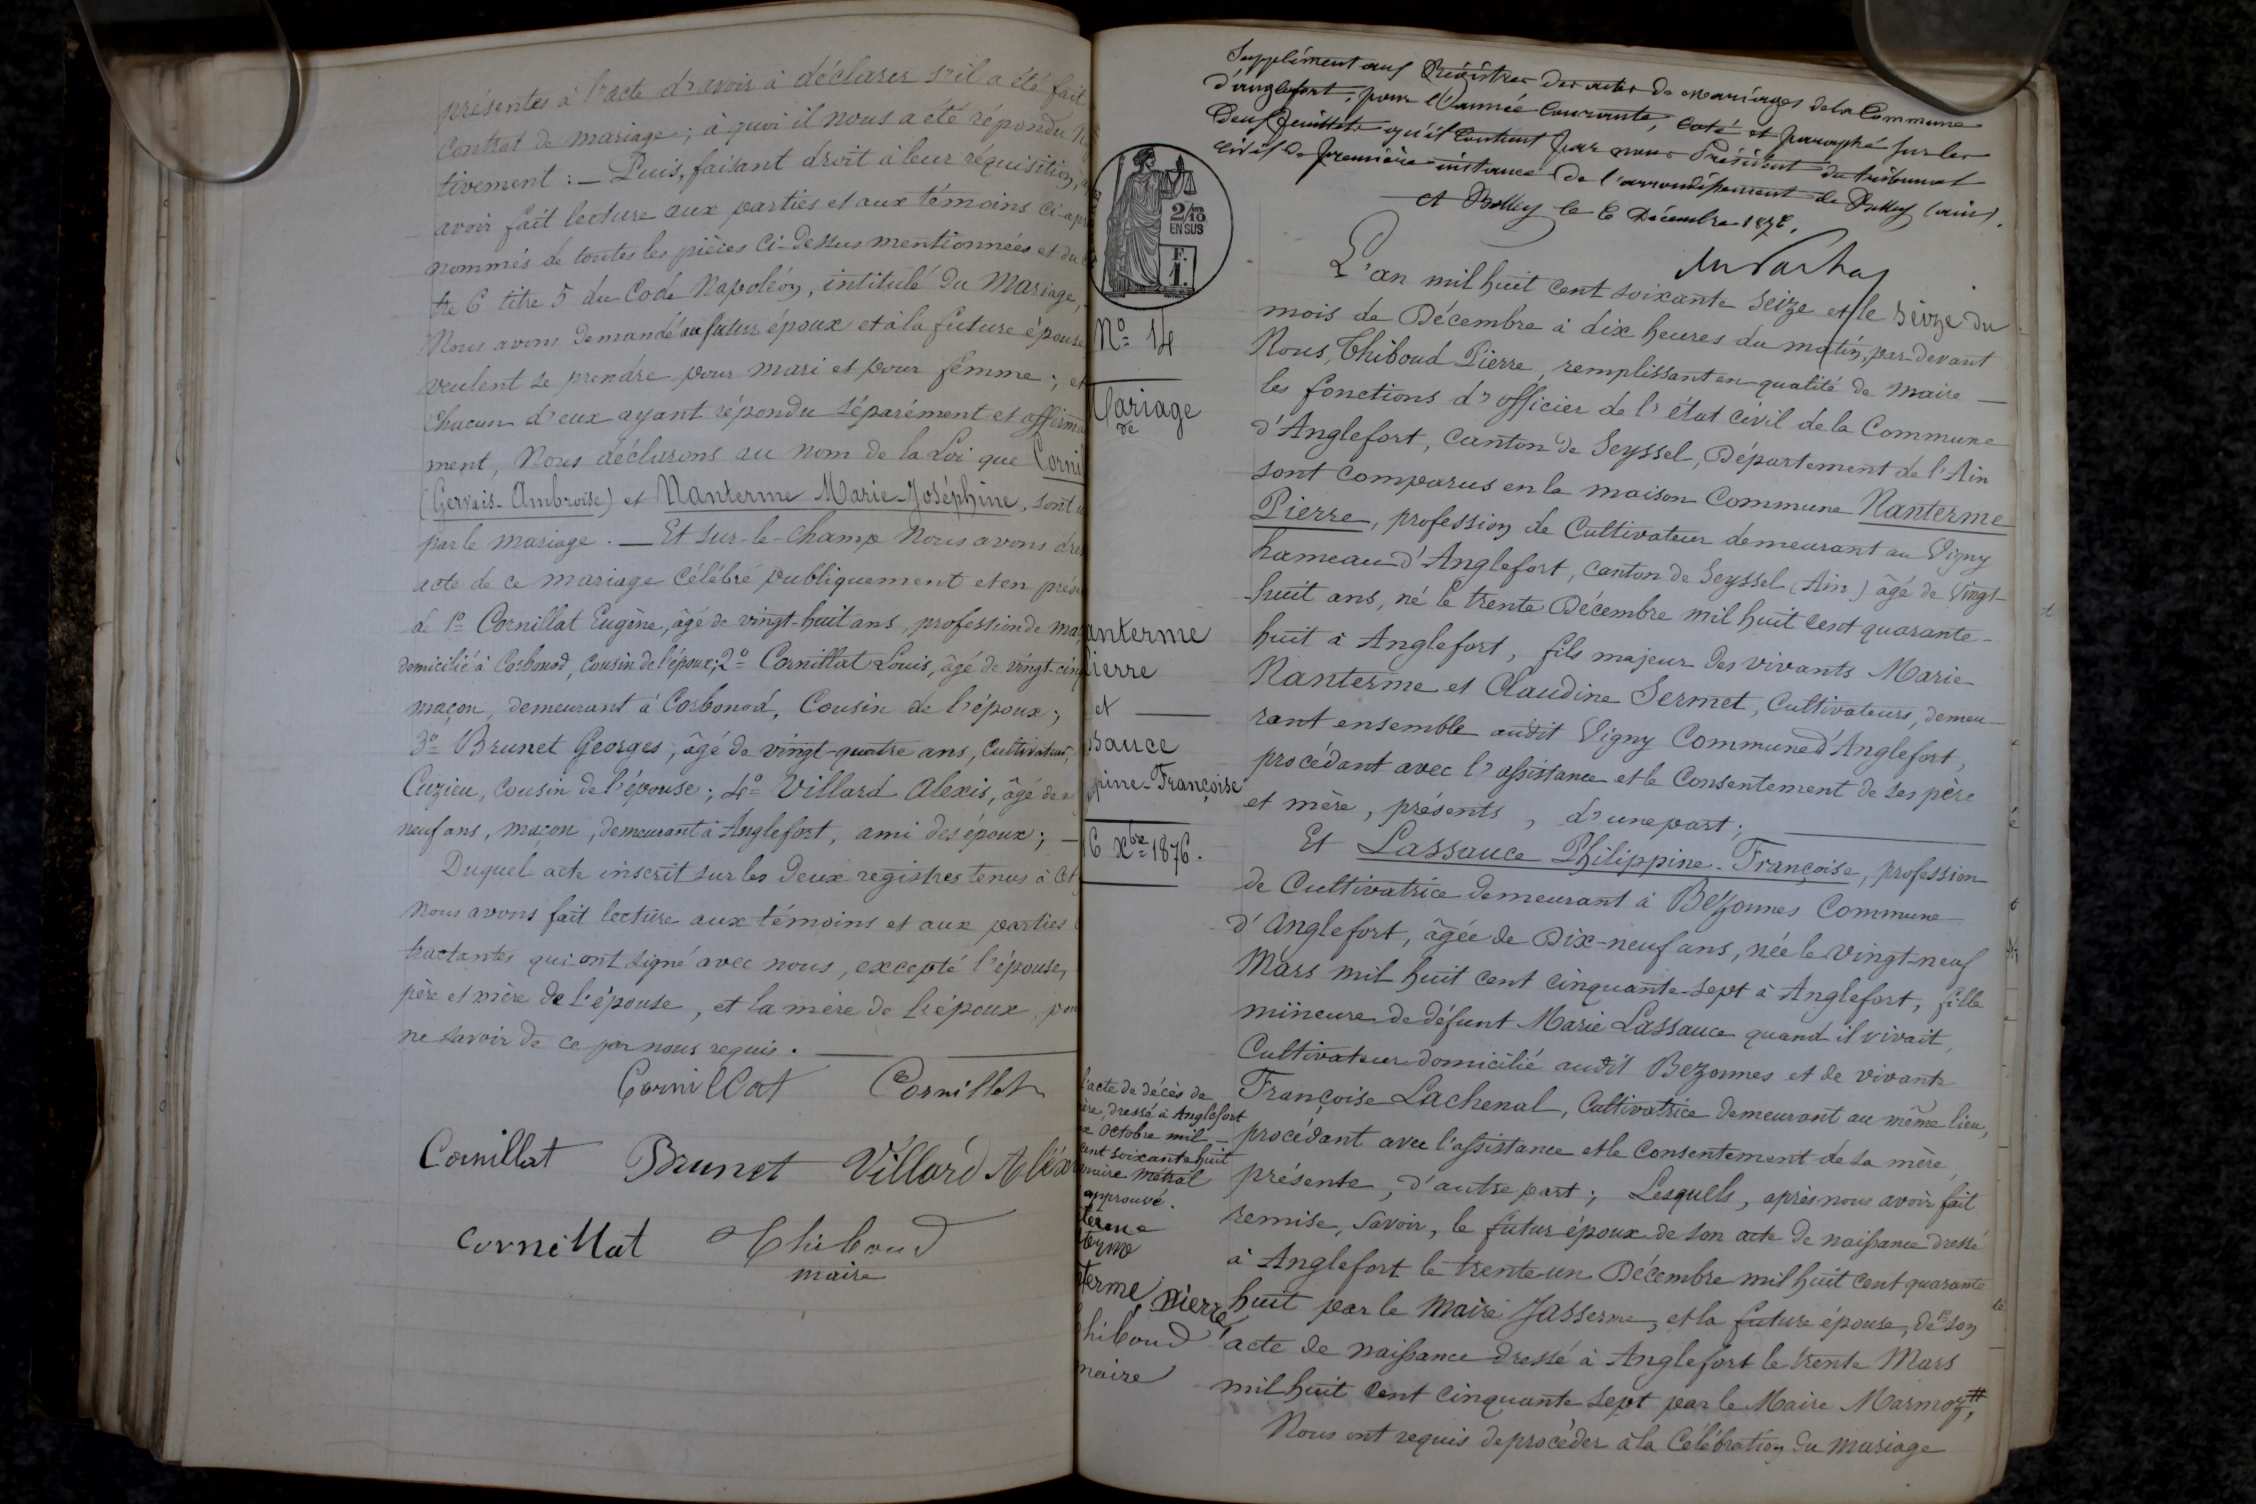 présentes à l'acte d'avoir à déclarer s'il a été fait
Contrat de mariage; à quoi il nous a été répondu
tivement: — Puis, faisant droit à leur réquisition,
avoir fait lecture aux parties et aux témoins ci-apr
nommés de toutes les pièces ci-dessus mentionnées et du
tre 6 titre 5 du Code Napoléon, intitulé du Mariage,
Nous avons demandé au futur époux et à la future épouse
veulent se prendre pour mari et pour femme; et
Chacun d'eux ayant répondu séparément et affirma
ment, Nous déclarons au nom de la Loi que Corni
(Gervais-Ambroise) et Nanterme Marie-Joséphine, sont u
par le mariage. — Et sur-le-champ Nous avons dres
acte de ce mariage célébré publiquement et en prése
de 1º Cornillat Eugène, âgé de vingt-huit ans, profession de ma
domicilié à Corbonod, cousin de l'époux; 2º Cornillat Louis, âgé de vingt-cinq
maçon, demeurant à Corbonod, Cousin de l'époux;
3º Brunet Georges, âgé de vingt-quatre ans, Cultivateur,
Cuzieu, cousin de l'épouse; 4º Villard Alexis, âgé de
neuf ans, maçon, demeurant à Anglefort, ami des époux; —
Duquel acte inscrit sur les deux registres tenus à cet
Nous avons fait lecture aux témoins et aux parties
tractantes qui ont signé avec nous, excepté l'épouse,
père et mère de l'épouse, et la mère de l'époux, pour
ne savoir de ce par nous requis. —
Cornillat Cornillat
Cornillat Brunet Villard Aléx
Cornillat Thiboud
maire
Supplément aux Régistres des actes de mariages de la Commune
d'anglefort, pour l'année courante, coté et paraphé sur les
deux feuillets qu'il contient par nous Président du tribunal
civil de première instance de l'arrondissement de Belley (ain).
A Belley le 6 Décembre 1876.
2/10 EN SUS
F.
1.
Nº 14
Mariage
de
anterme
ierre
et —
sauce
pine-Françoise
6 Xbre 1876.
L'an mil huit cent soixante seize et le seize du
mois de Décembre à dix heures du matin, par-devant
Nous, Thiboud Pierre, remplissant en qualité de maire —
les fonctions d'officier de l'état civil de la Commune
d'Anglefort, Canton de Seyssel, Département de l'Ain
sont comparus en la maison Commune Nanterme
Pierre, profession de Cultivateur demeurant au Vigny
hameau d'Anglefort, canton de Seyssel (Ain) âgé de Vingt-
huit ans, né le trente Décembre mil huit cent quarante-
huit à Anglefort, fils majeur des vivants Marie
Nanterme et Claudine Sermet, Cultivateurs, demeu-
rant ensemble audit Vigny Commune d'Anglefort,
procédant avec l'assistance et le Consentement de ses père
et mère, présents, d'une part; —
Et Lassauce Philippine-Françoise, profession
de Cultivatrice demeurant à Bézonnes Commune
d'Anglefort, âgée de Dix-neuf ans, née le vingt-neuf
Mars mil huit cent cinquante-sept à Anglefort, fille
mineure de défunt Marie Lassauce quand il vivait,
Cultivateur domicilié audit Bezonnes et de vivante
Françoise Lachenal, Cultivatrice demeurant au même lieu,
procédant avec l'assistance et le Consentement de sa mère
présente, d'autre part; Lesquels, après nous avoir fait
remise, savoir, le futur époux de son acte de naissance dressé
à Anglefort le trente un Décembre mil huit cent quarante
huit par le maire Jasserme, et la future épouse, de 1º son
acte de naissance dressé à Anglefort le trente Mars
mil huit cent cinquante sept par le Maire Marmoz, #
Nous ont requis de procéder à la Célébration du mariage
l'acte de décès de
ère, dressé à Anglefort
Octobre mil —
cent soixante huit
maire Métral
approuvé.
terme
terme
terme Pierre
hiboud
maire